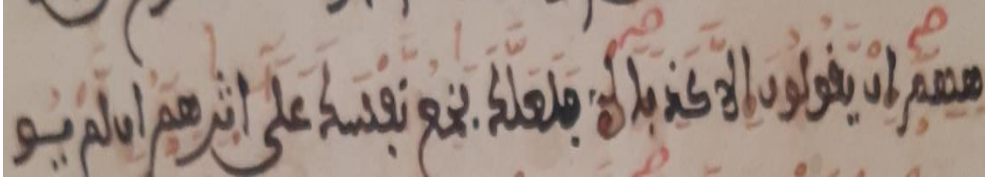 ههم ان يقولون الا كذبا فلعلك بخع نفسك على اثرهم ان لم يو